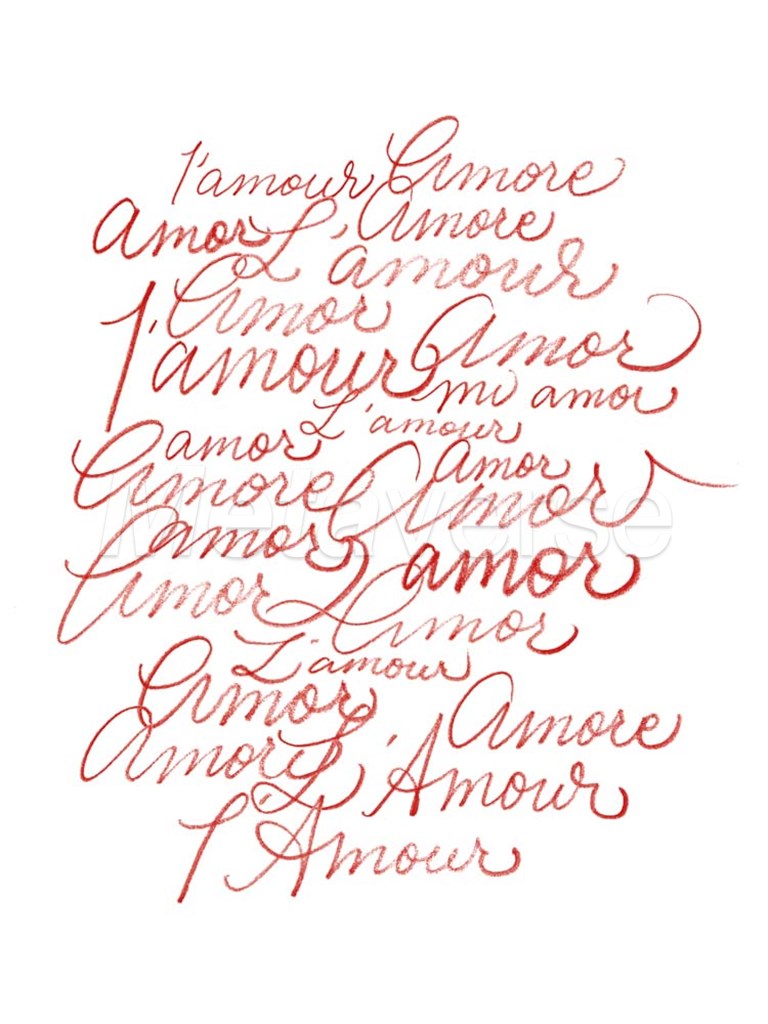 l'amour Amore
Amor L'amour Amore
Amor
l'amour Amor
mi amor
L'amour
amor
Amore Amor
Amor
amor amor
Amor Amor
L'amour
Amor
Amore
Amor L'Amour
l'Amour
Metaverse